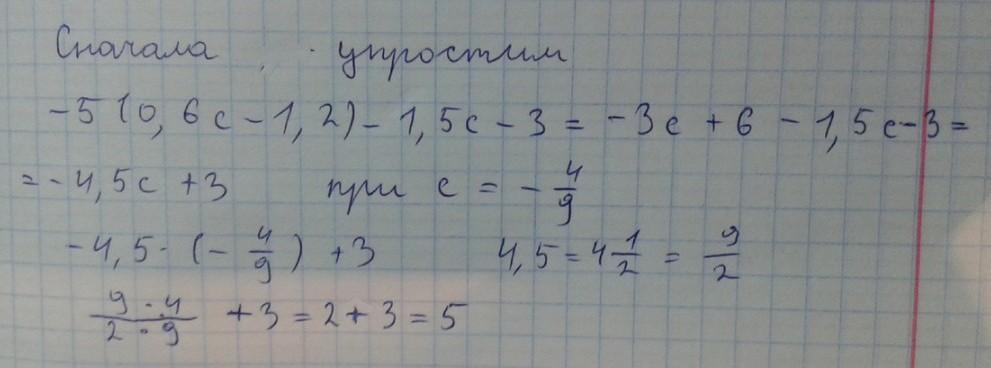 Сначала упростим
-5(0,6c-1,2)-1,5c-3=-3c+6-1,5c-3=
=-4,5c+3 при c=-4/9
-4,5·(-4/9)+3 4,5=4 1/2=9/2
9·4/2·9+3=2+3=5